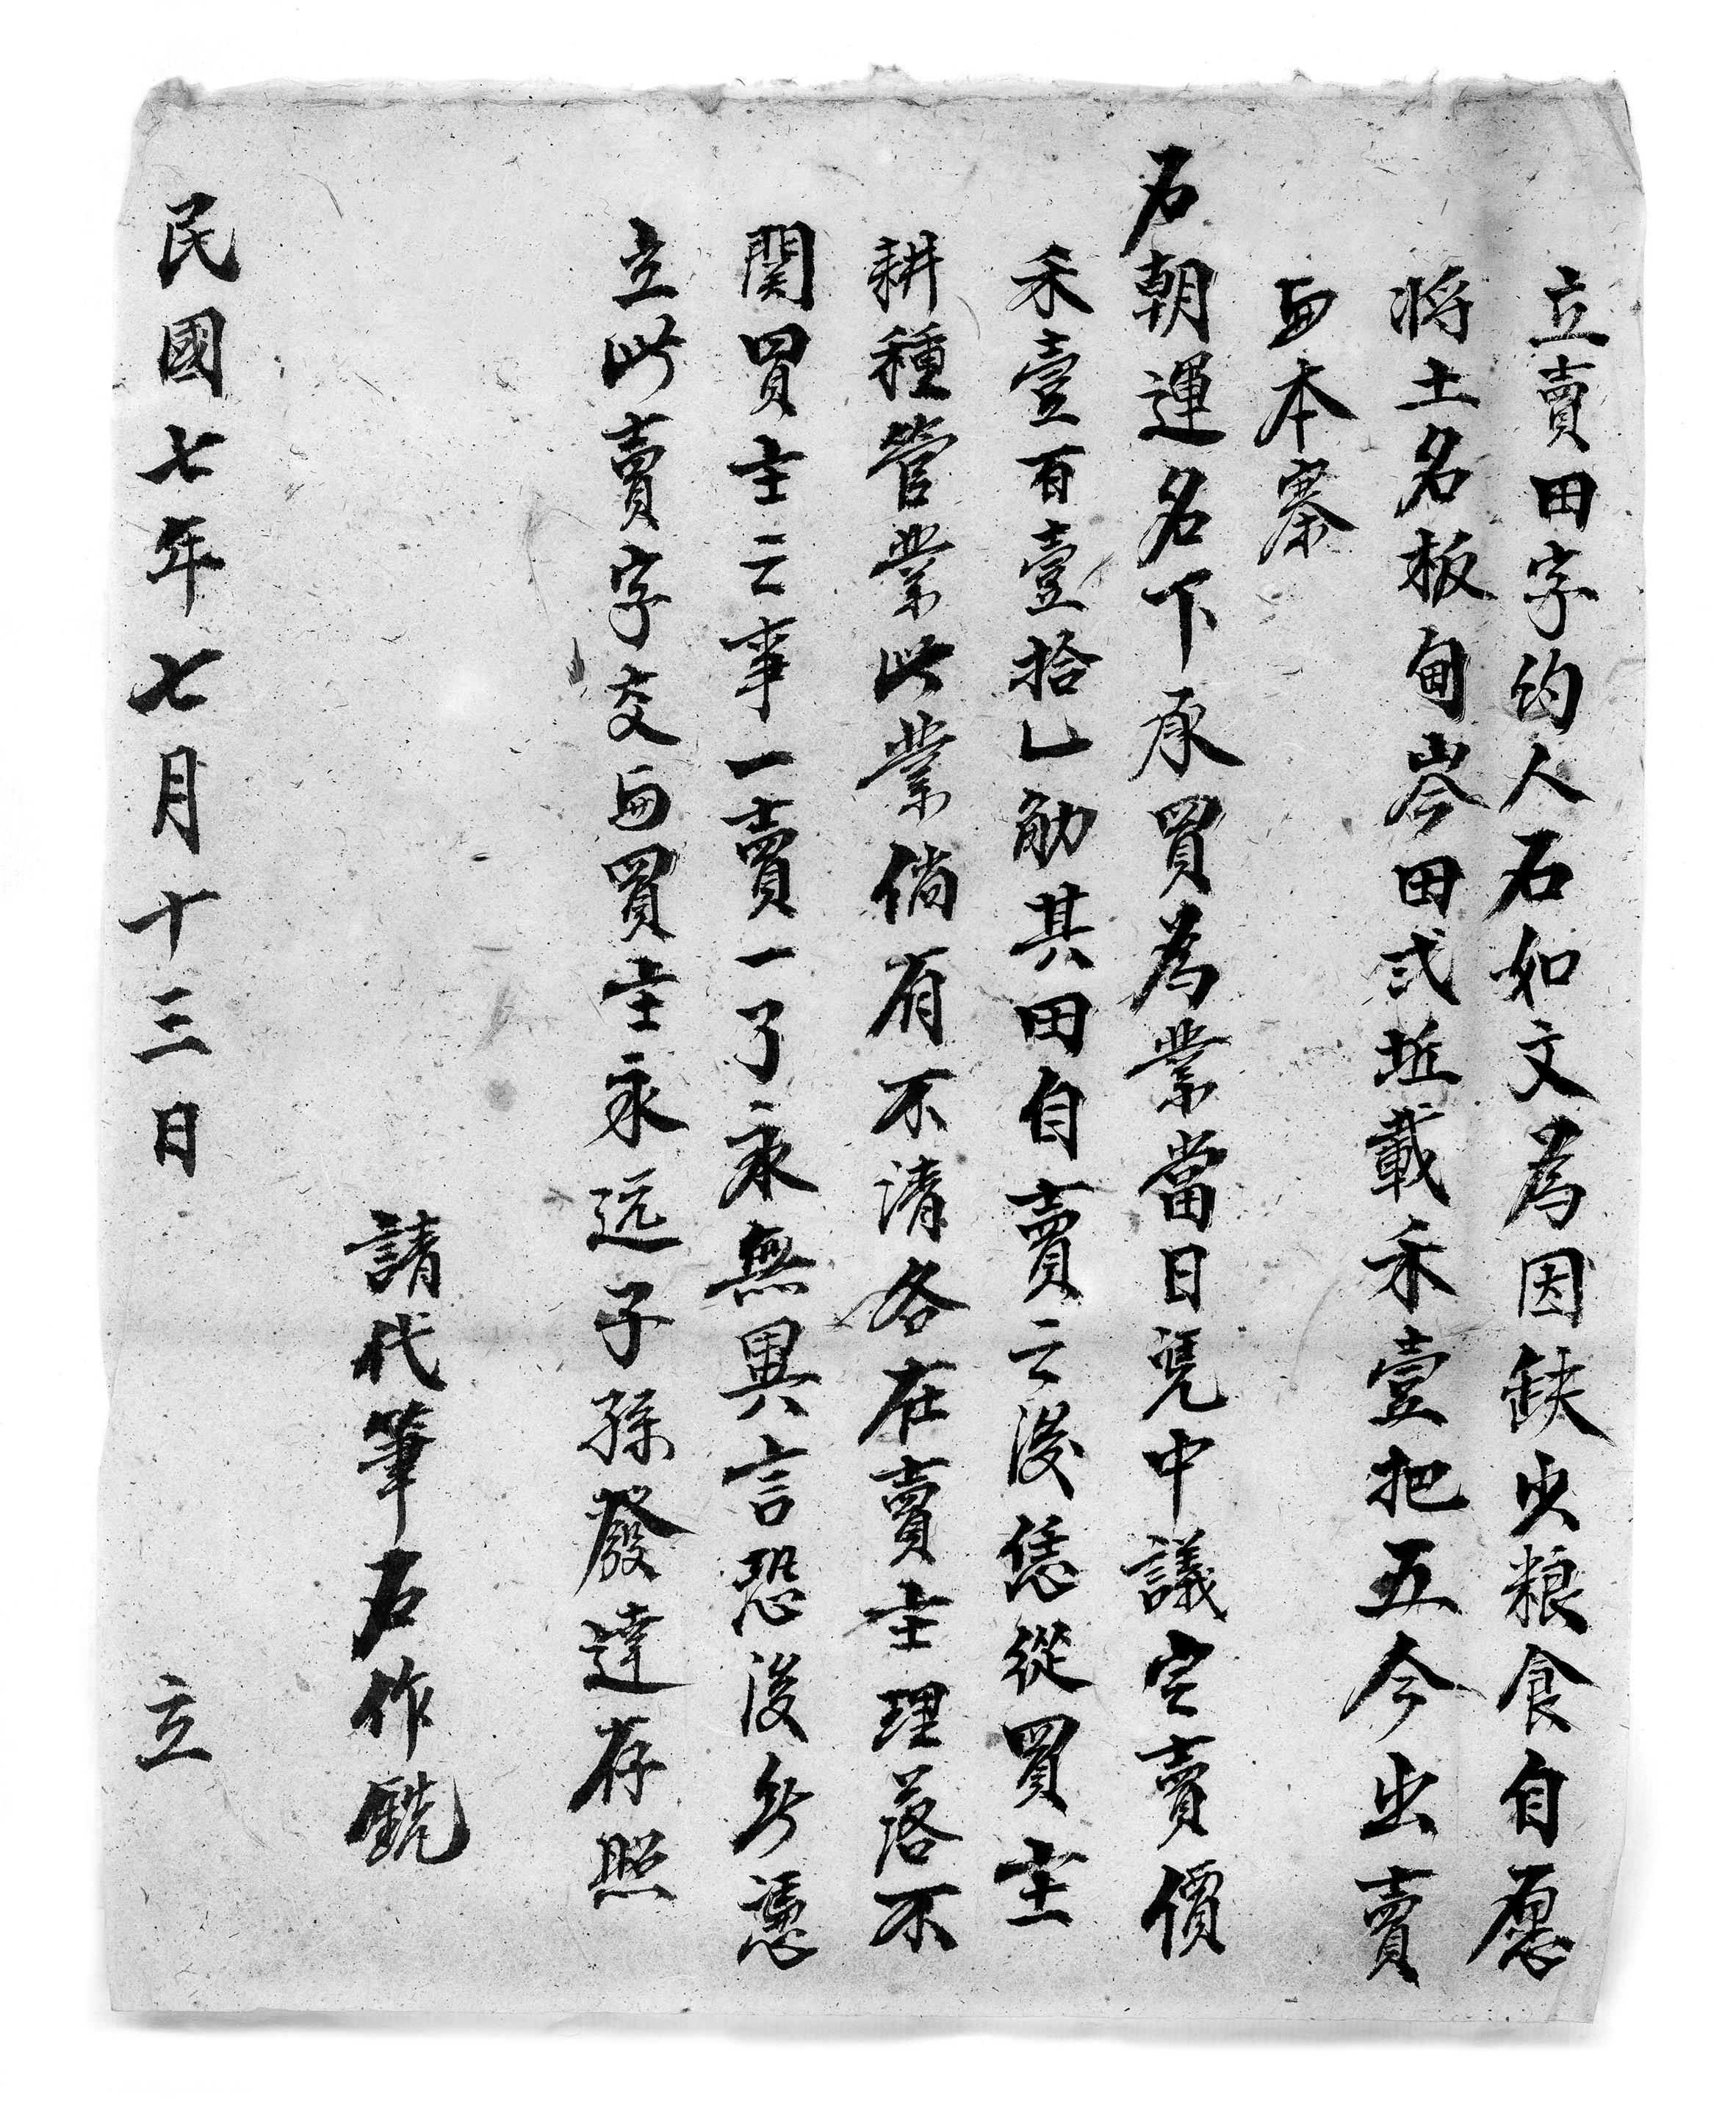 立賣田字約人石如文為因缺少粮食自愿
将土名板甸岑田弍坵載禾壹把五今出賣
与本寨
石朝運名下承買為業當日凭中議定賣價
禾壹百壹拾乚觔其田自賣云後恁從買主
耕種管業此業倘有不清各在賣主理落不
関買主云事一賣一了永無異言恐後無憑
立此賣字交与買主永远子孫發達存照
請代筆石作
民國七年七月十三日 立